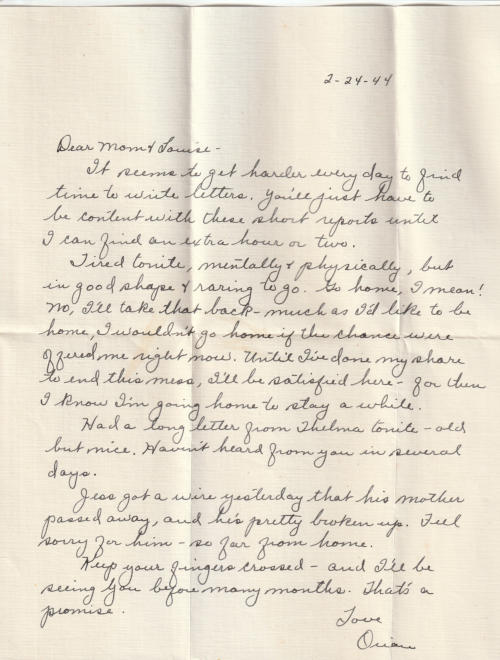 2-24-44
Dear Mom & Louise-
It seems to get harder every day to find
time to write letters. You'll just have to
be content with these short reports until
I can find an extra hour or two.
Tired tonite, mentally & physically, but
in good shape & raring to go. Go home, I mean!
No, I'll take that back - much as I'd like to be
home, I wouldn't go home if the chance were
offered me right now. Until I've done my share
to end this mess, I'll be satisfied here - for then
I know I'm going home to stay a while.
Had a long letter from Thelma tonite - old
but nice. Haven't heard from you in several
days.
Jess got a wire yesterday that his mother
passed away, and he's pretty broken up. Feel
sorry for him - so far from home.
Keep your fingers crossed - and I'll be
seeing you before many months. That's a
promise.
Love